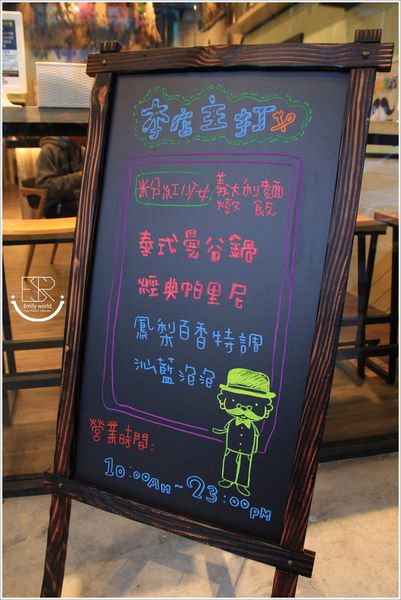 本店主打
粉紅少女 義大利麵
燉飯
泰式曼谷鍋
經典帕里尼
鳳梨百香特調
沁藍泡泡
營業時間:
10:00AM~23:00PM
ESR
Emily world